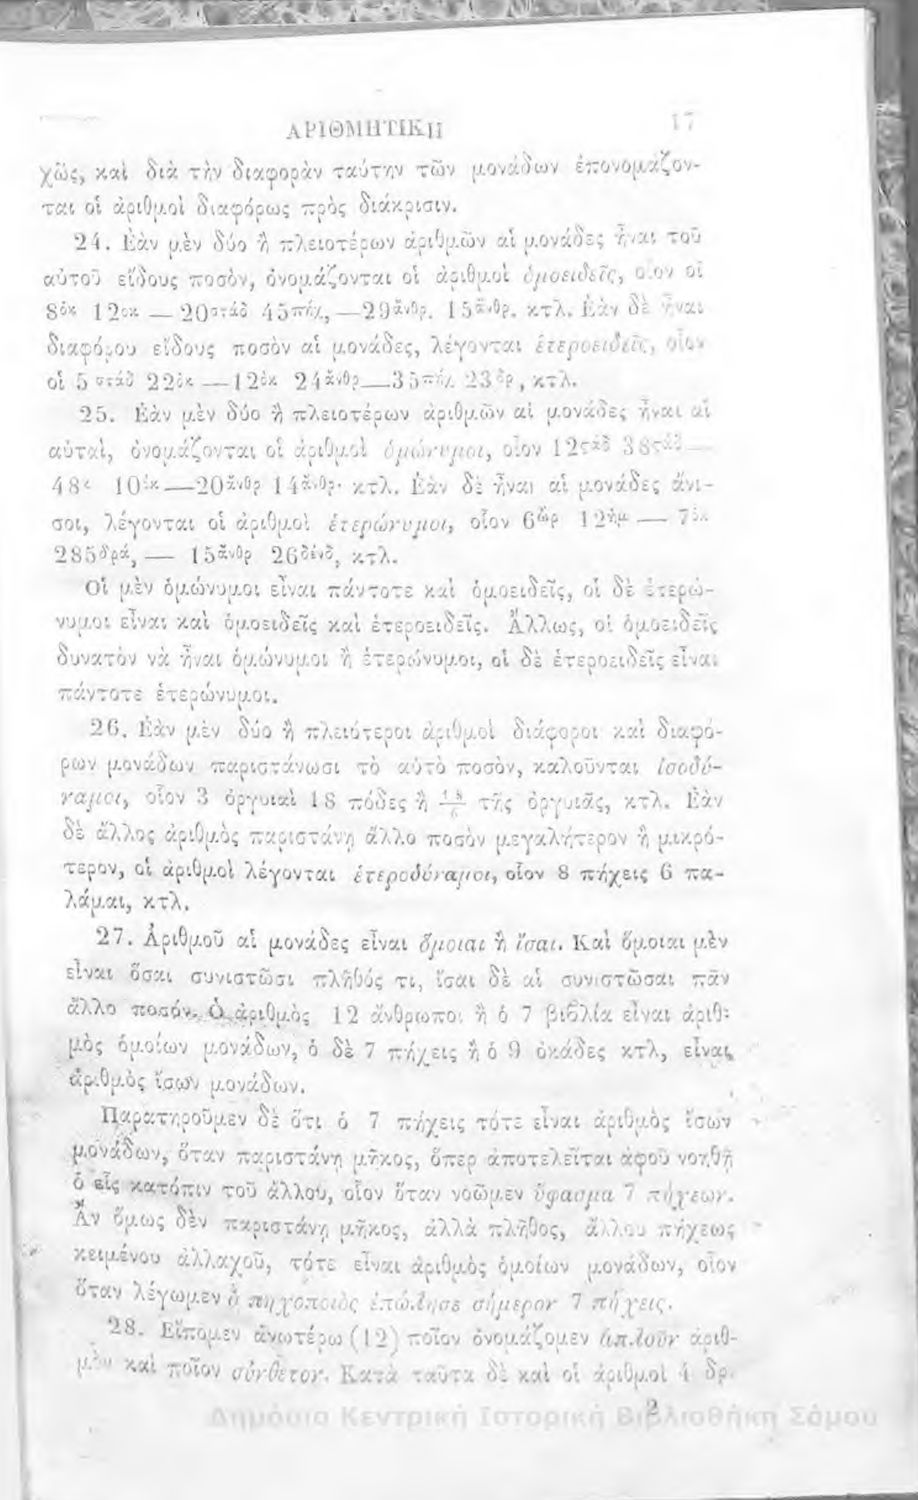 ΑΡΙΘΜΗΤΙΚΗ 17
χῶς, καὶ διὰ τὴν διαφορὰν ταύτην τῶν μονάδων ἐπονομάζον-
ται οἱ ἀριθμοὶ διαφόρως πρὸς διάκρισιν.
24. Ἐὰν μὲν δύο ἢ πλειοτέρων ἀριθμῶν αἱ μονάδες ἦναι τοῦ
αὐτοῦ εἴδους ποσὸν, ὀνομάζονται οἱ ἀριθμοὶ ὁμοειδεῖς, οἷον οἱ
8ὀκ 12ὀκ — 20στάδ 45πήχ, —29ἄνθρ. 15ἄνθρ. κτλ. Ἐὰν δὲ ἦναι
διαφόρου εἴδους ποσὸν αἱ μονάδες, λέγονται ἑτεροειδεῖς, οἷον
οἱ 5 στάδ 22ὀκ —12ὀκ 24ἄνθρ—35πήχ 23 , κτλ.
25. Ἐὰν μὲν δύο ἢ πλειοτέρων ἀριθμῶν αἱ μονάδες ἦναι αἱ
αὐταὶ, ὀνομάζονται οἱ ἀριθμοὶ ὁμώνυμοι, οἷον 12στάδ 38στάδ —
48κ 10ὀκ—20ἄνθρ 14ἄνθρ. κτλ. Ἐὰν δὲ ἦναι αἱ μονάδες ἄνι-
σοι, λέγονται οἱ ἀριθμοὶ ἑτερώνυμοι, οἷον 6ὧρ 12ἡμ — 7ὀκ
285δρά, — 15ἄνθρ 26δένδ, κτλ.
Οἱ μὲν ὁμώνυμοι εἶναι πάντοτε καὶ ὁμοειδεῖς, οἱ δὲ ἑτερώ-
νυμοι εἶναι καὶ ὁμοειδεῖς καὶ ἑτεροειδεῖς. Ἄλλως, οἱ ὁμοειδεῖς
δυνατὸν νὰ ἦναι ὁμώνυμοι ἢ ἑτερώνυμοι, οἱ δὲ ἑτεροειδεῖς εἶναι
πάντοτε ἑτερώνυμοι.
26. Ἐὰν μὲν δύο ἢ πλειότεροι ἀριθμοὶ διάφοροι καὶ διαφό-
ρων μονάδων παριστάνωσι τὸ αὐτὸ ποσὸν, καλοῦνται ἰσοδύ-
ναμοι, οἷον 3 ὀργυιαὶ 18 πόδες ἢ 18/6 τῆς ὀργυιᾶς, κτλ. Ἐὰν
δὲ ἄλλος ἀριθμὸς παριστάνῃ ἄλλο ποσὸν μεγαλήτερον ἢ μικρό-
τερον, οἱ ἀριθμοὶ λέγονται ἑτεροδύναμοι, οἷον 8 πήχεις 6 πα-
λάμαι, κτλ.
27. Ἀριθμοῦ αἱ μονάδες εἶναι ὅμοιαι ἢ ἴσαι. Καὶ ὅμοιαι μὲν
εἶναι ὅσαι συνιστῶσι πλῆθός τι, ἴσαι δὲ αἱ συνιστῶσαι πᾶν
ἄλλο ποσόν. Ὁ ἀριθμὸς 12 ἄνθρωποι ἢ ὁ 7 βιβλία εἶναι ἀριθ-
μὸς ὁμοίων μονάδων, ὁ δὲ 7 πήχεις ἢ ὁ 9 ὀκάδες κτλ, εἶναι
ἀριθμὸς ἴσων μονάδων.
Παρατηροῦμεν δὲ ὅτι ὁ 7 πήχεις τότε εἶναι ἀριθμὸς ἴσων
μονάδων, ὅταν παριστάνῃ μῆκος, ὅπερ ἀποτελεῖται ἀφοῦ νοηθῇ
ὁ εἷς κατόπιν τοῦ ἄλλου, οἷον ὅταν νοῶμεν ὕφασμα 7 πήχεων.
Ἂν ὅμως δὲν παριστάνῃ μῆκος, ἀλλὰ πλῆθος, ἄλλου πήχεως
κειμένου ἀλλαχοῦ, τότε εἶναι ἀριθμὸς ὁμοίων μονάδων, οἷον
ὅταν λέγωμεν ὁ πηχοποιὸς ἐπώλησε σήμερον 7 πήχεις.
28. Εἴπομεν ἀνωτέρω (12) ποῖον ὀνομάζομεν ἁπλοῦν ἀριθ-
μὸν καὶ ποῖον σύνθετον. Κατὰ ταῦτα δὲ καὶ οἱ ἀριθμοὶ 4 δρ.
2
Δημόσια Κεντρική Ιστορική Βιβλιοθήκη Σάμου